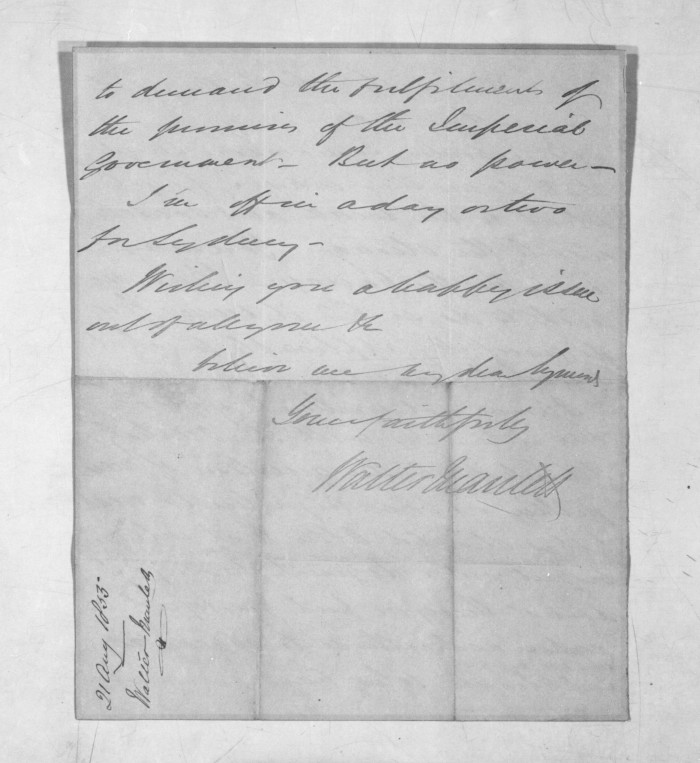 to demand the fulfilment of
the promises of the Imperial
Government - But no power -
I'm off in a day or two
for Sydney -
Wishing you a happy issue
out of all your &c
believe me my dear Symonds
Yours faithfully
Walter Mantell
21 Aug 1853.
Walter Mantell